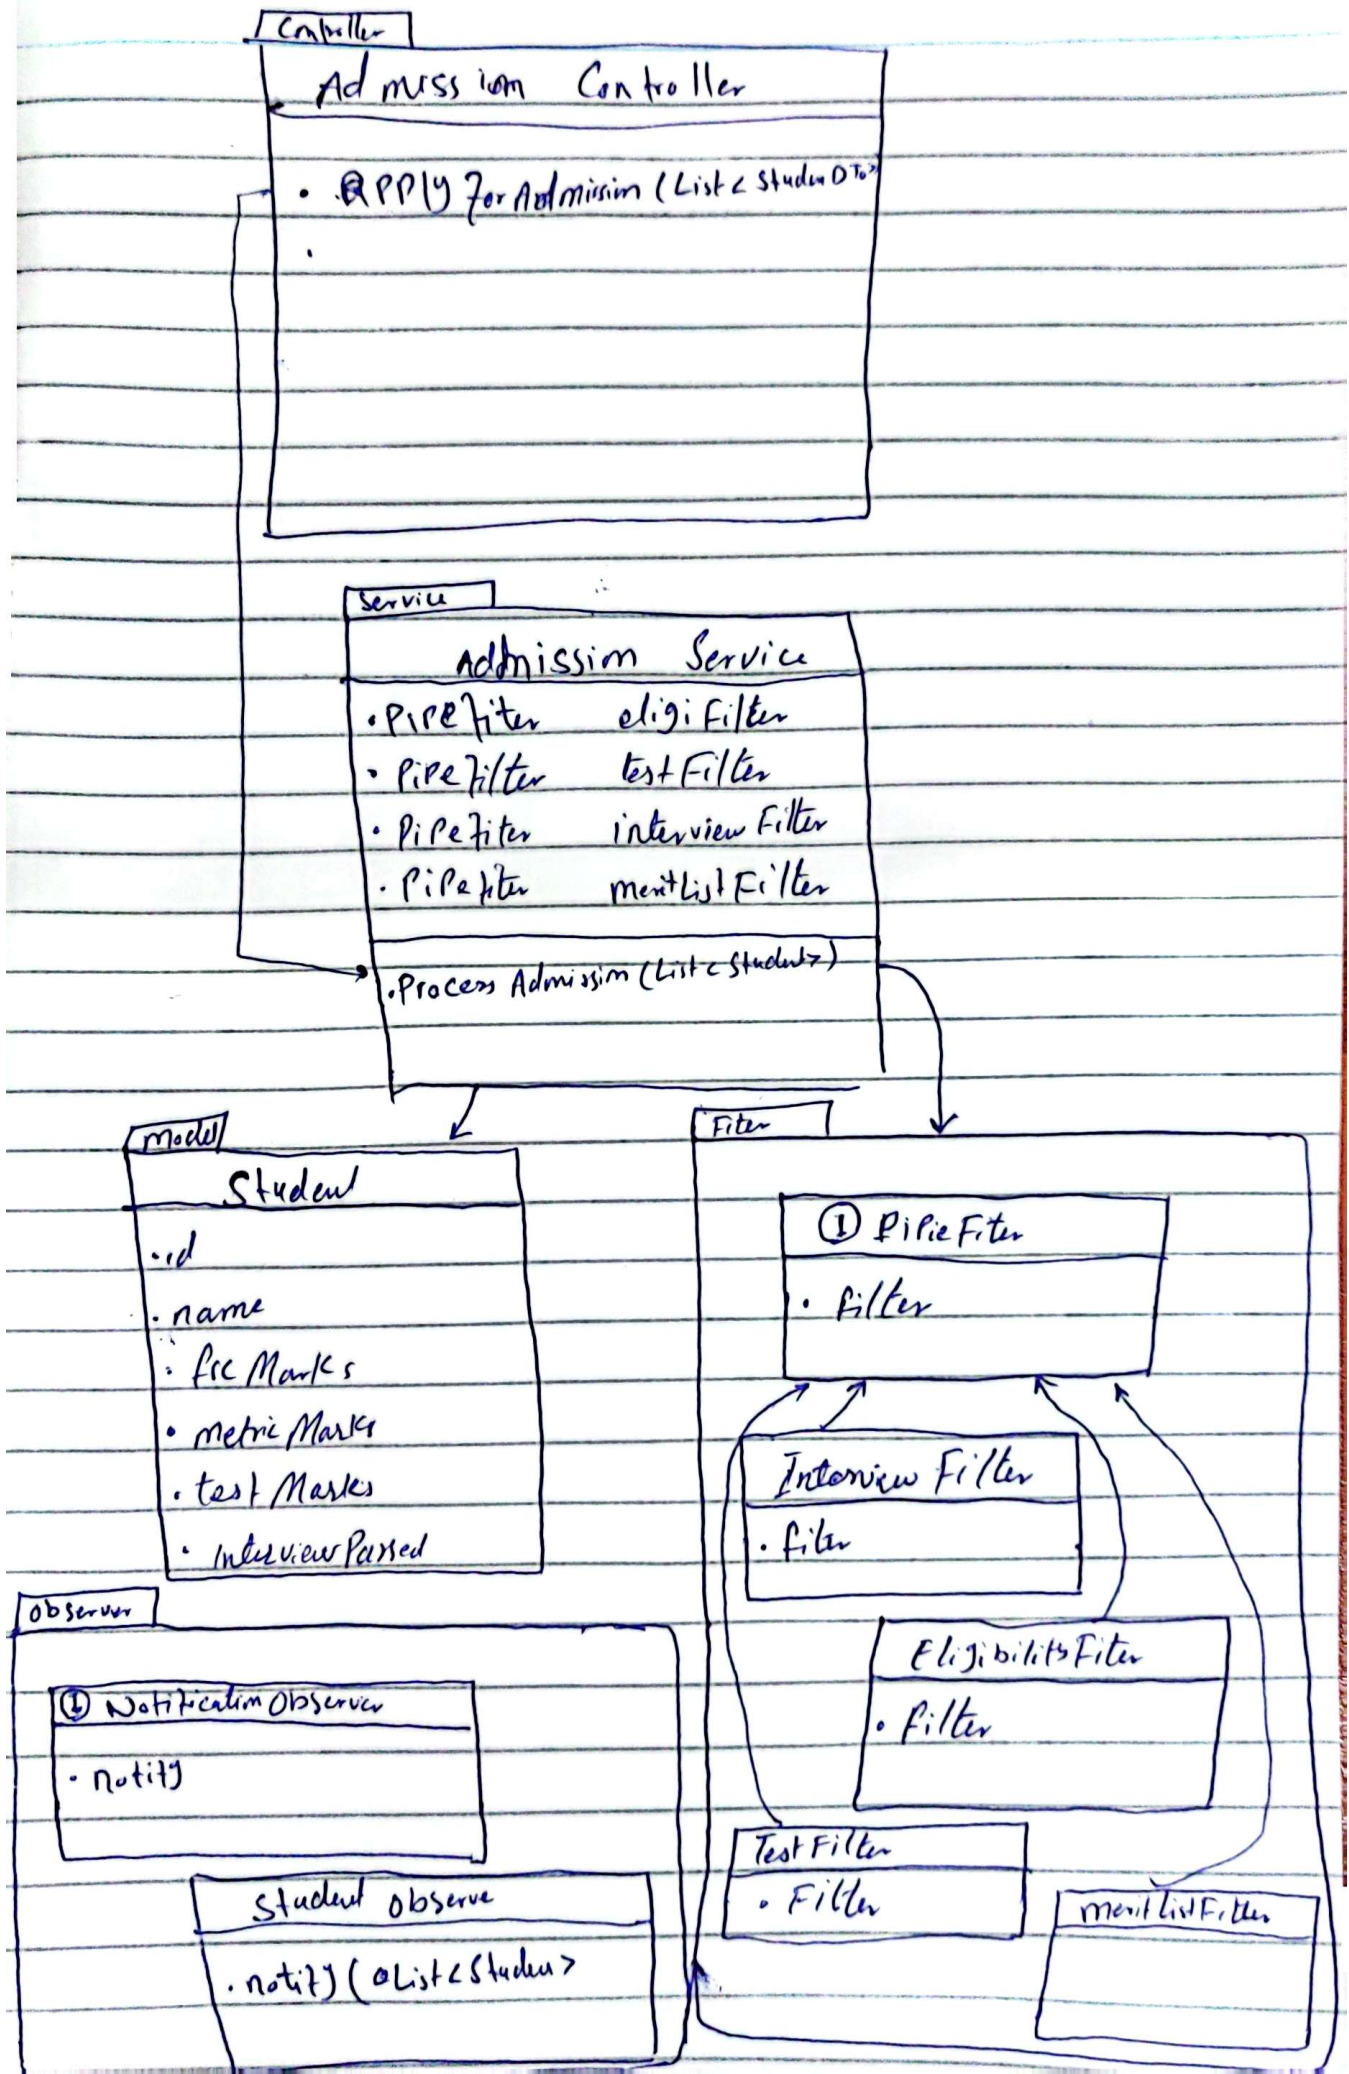 Controller
Admission Controller
• Apply For Admission (List < StudenDTo>
•
Service
Admission Service
• PiPeFiter eligiFilter
• PiPeFilter testFilter
• PiPeFiter interviewFilter
• PiPeFiter meritListFilter
• Process Admission (List < Student>)
Model
Student
• id
• name
• fsc Marks
• metric Marks
• test Marks
• InterviewPassed
Fiter
① PiPieFiter
• filter
Interview Filter
• filter
EligibilityFiter
• Filter
TestFilter
• Filter
meritListFilter
Observer
① Notification Observer
• notify
Student Observe
• notify ( List < Studen>